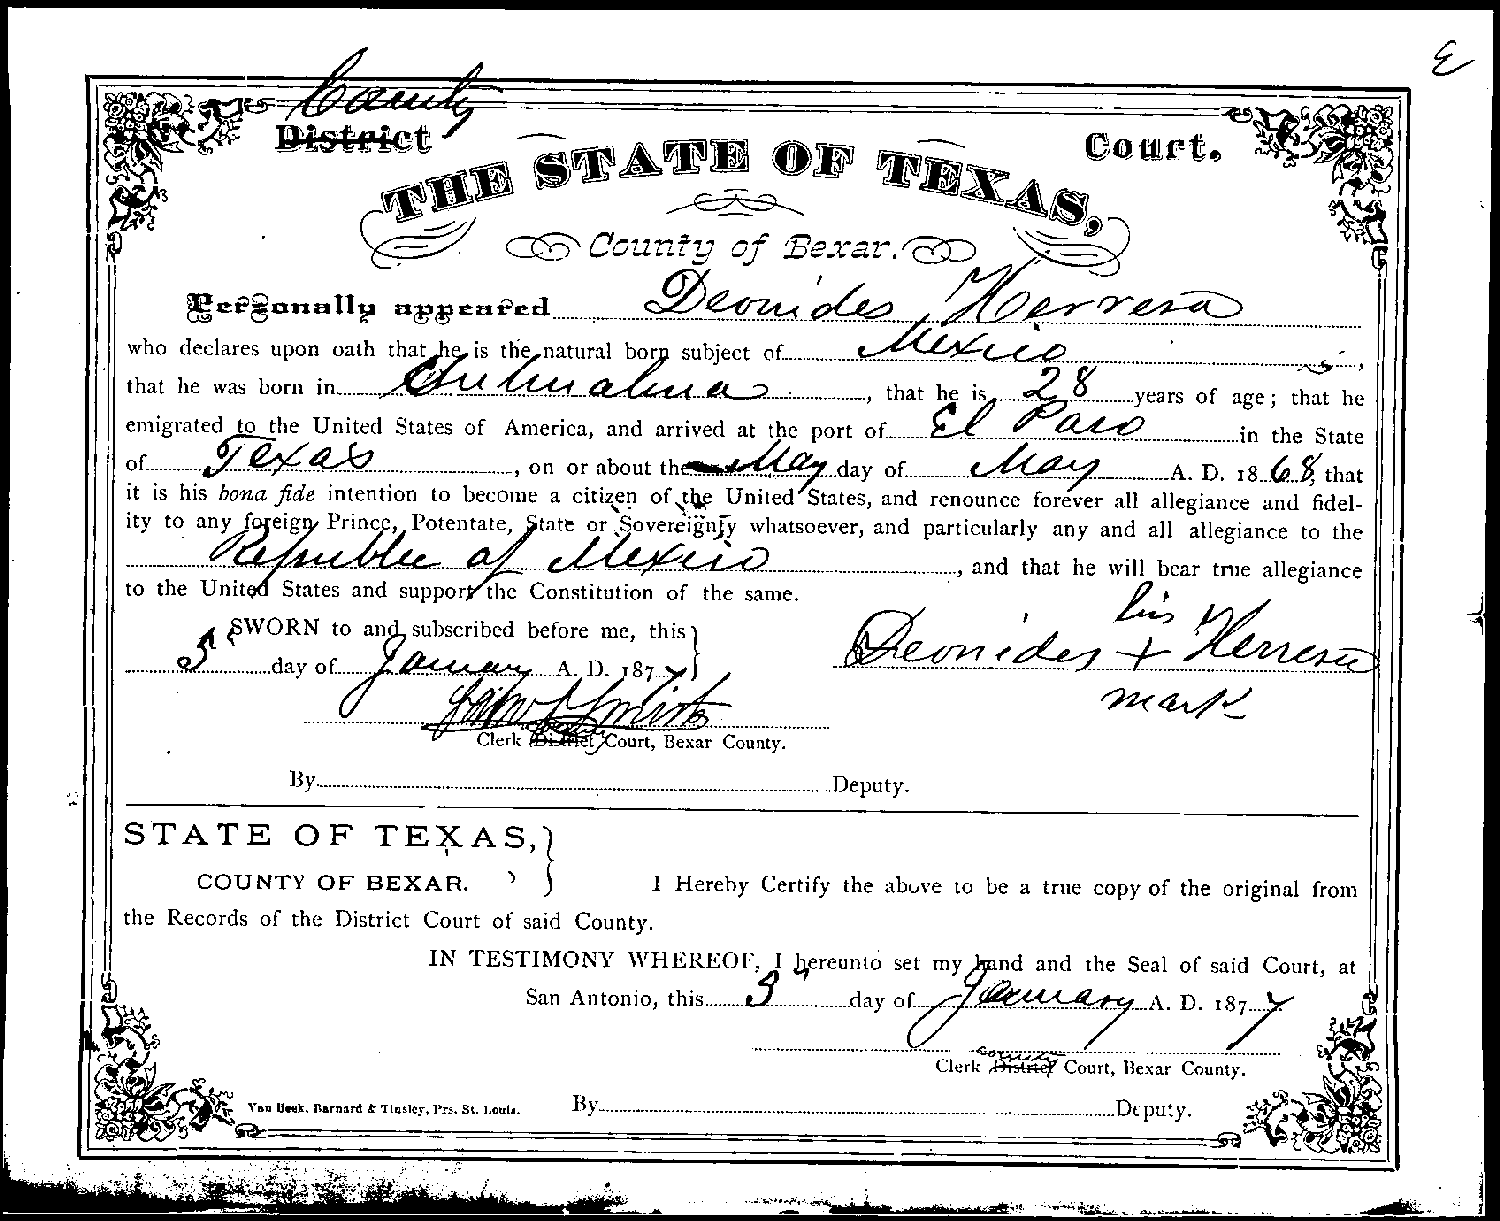 ε
County
District Court.
THE STATE OF TEXAS,
County of Bexar.
Personally appeared Deonides Herrera
who declares upon oath that he is the natural born subject of Mexico ,
that he was born in Chihuahua , that he is 28 years of age; that he
emigrated to the United States of America, and arrived at the port of El Paso in the State
of Texas , on or about the May day of May A. D. 1868, that
it is his bona fide intention to become a citizen of the United States, and renounce forever all allegiance and fidel-
ity to any foreign Prince, Potentate, State or Sovereignty whatsoever, and particularly any and all allegiance to the
Republic of Mexico , and that he will bear true allegiance
to the United States and support the Constitution of the same.
his
SWORN to and subscribed before me, this
5 day of January A. D. 1877 Deonides + Herrera
mark
Smith
Clerk District Court, Bexar County.
By Deputy.
STATE OF TEXAS,
COUNTY OF BEXAR. I Hereby Certify the above to be a true copy of the original from
the Records of the District Court of said County.
IN TESTIMONY WHEREOF, I hereunto set my hand and the Seal of said Court, at
San Antonio, this 5" day of January A. D. 1877
County
Clerk District Court, Bexar County.
Van Beek, Barnard & Tinsley, Prs. St. Louis. By Deputy.